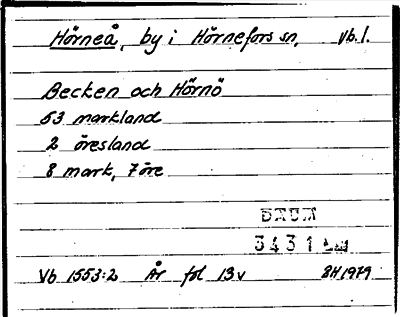 Hörneå, by i Hörnefors sn, Vb. l.
Becken och Hörnö
53 markland
2 öresland
8 mark, 7 öre
3431
Vb 1553:2 År fol 13v BH 1979